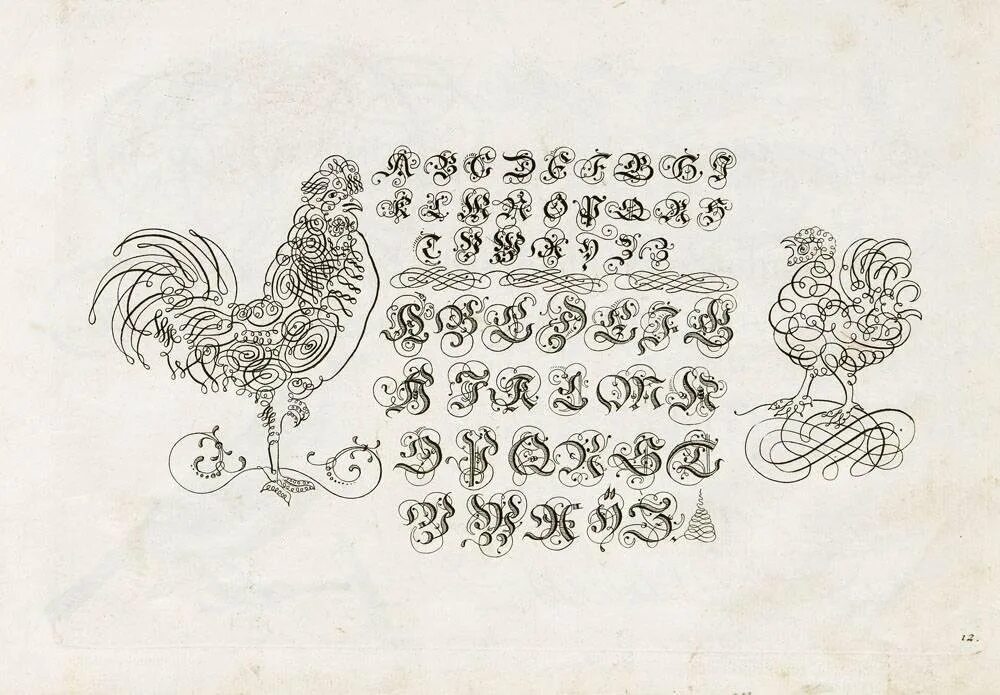 A B C D E F G H I
K L M N O P Q R S
T V W X Y Z Z
A B C D E F G
H I K L M N
O P Q R S T
V W X Y Z.
12.